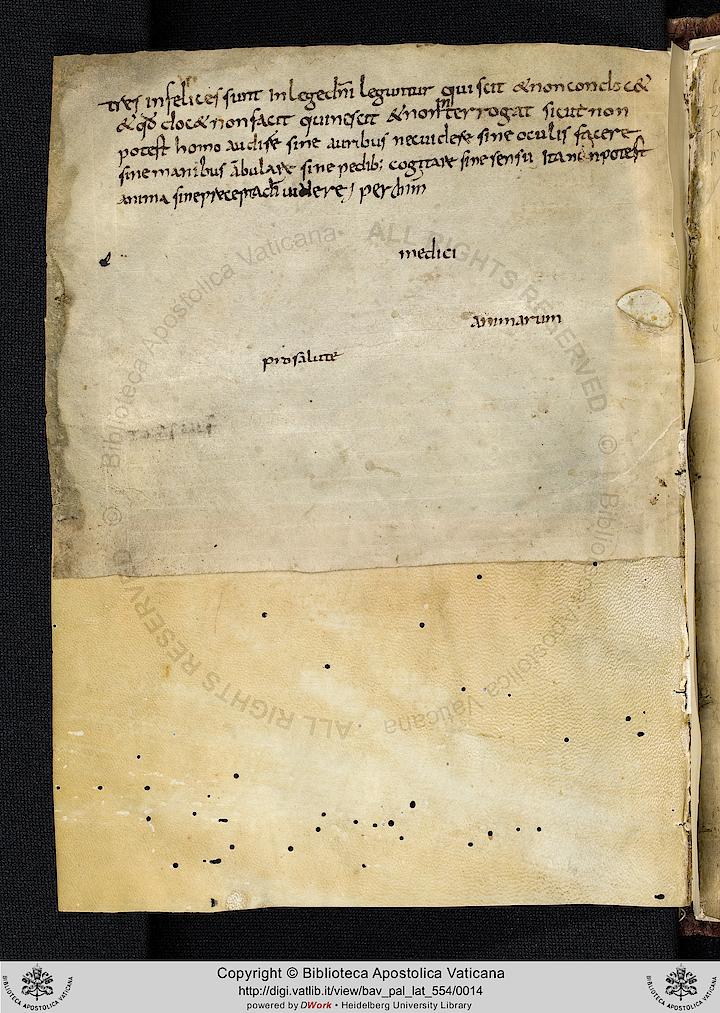 tres infelices sunt in lege dni leguntur qui scit & non docc&
& qd doc& non facit qui nescit & non interrogat sicut non
potest homo audire sine auribus nec videre sine oculis facere
sine manibus abulare sine pedib; cogitare sine sensu Ita non potest
anima sine videre per
medici
animarum
pro salute
Copyright © Biblioteca Apostolica Vaticana
http://digi.vatlib.it/view/bav_pal_lat_554/0014
powered by DWork • Heidelberg University Library
BIBLIOTECA APOSTOLICA VATICANA
BIBLIOTECA APOSTOLICA VATICANA
© Biblioteca Apostolica Vaticana · ALL RIGHTS RESERVED
© Biblioteca Apostolica Vaticana · ALL RIGHTS RESERVED